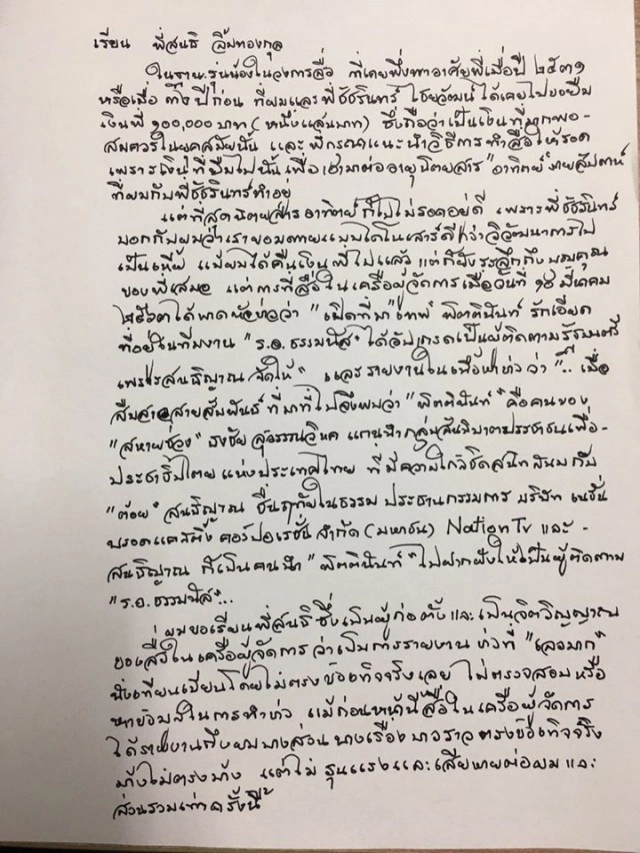 เรียน พี่สนธิ ลิ้มทองกุล
ในฐานะรุ่นน้องในวงการสื่อ ที่เคยพึ่งพาอาศัยพี่เมื่อปี ๒๕๓๑
หรือเมื่อ ๓๒ ปีก่อน ที่ผมและพี่ชัชรินทร์ ไชยวัฒน์ ได้เคยไปขอยืม
เงินพี่ ๑๐๐,๐๐๐ บาท (หนึ่งแสนบาท) ซึ่งถือว่าเป็นเงินที่มากพอ-
สมควรในยุคสมัยนั้น และพี่กรุณาแนะนำวิธีการทำสื่อให้รอด
เพราะเงินที่ยืมไปนั้น เพื่อเอามาต่ออายุนิตยสาร "อาทิตย์" รายสัปดาห์
ที่ผมกับพี่ชัชรินทร์ทำอยู่
แต่ที่สุดนิตยสารอาทิตย์ก็ไปไม่รอดอยู่ดี เพราะพี่ชัชรินทร์
บอกกับผมว่าเรายอมตายแบบไดโนเสาร์ดีกว่าวิวัฒนาการไป
เป็นเหี้ย แม้ผมได้คืนเงินพี่ไปแล้ว แต่ก็ยังระลึกถึงบุญคุณ
ของพี่เสมอ แต่การที่สื่อในเครือผู้จัดการเมื่อวันที่ ๑๕ มีนาคม
๒๕๖๓ ได้พาดหัวข่าวว่า "เปิดที่มา "เทพ" พิตตินันท์ รักเอียด
ที่อยู่ในทีมงาน "ร.อ.ธรรมนัส" ได้อัปเกรดเป็นผู้ติดตามรัฐมนตรี
เพราะสนธิญาณจัดให้" และรายงานในเนื้อหาข่าวว่า ".. เมื่อ
สืบสาวสายสัมพันธ์ที่มาที่ไปจึงพบว่า "พิตตินันท์" คือคนของ
"สหายช่วง" ธงชัย สุวรรณวิหค แกนนำกลุ่มพันธมิตรประชาชนเพื่อ-
ประชาธิปไตย แห่งประเทศไทย ที่มีความใกล้ชิดสนิทสนมกับ
"ต้อย" สนธิญาณ ชื่นฤทัยในธรรม ประธานกรรมการ บริษัท เนชั่น
บรอดแคสติ้ง คอร์ปอเรชั่น จำกัด (มหาชน) NationTV และ -
สนธิญาณ ก็เป็นคนนำ "พิตตินันท์" ไปฝากฝังให้เป็นผู้ติดตาม
"ร.อ.ธรรมนัส"...
ผมขอเรียนพี่สนธิซึ่งเป็นผู้ก่อตั้งและเป็นจิตวิญญาณ
ของสื่อในเครือผู้จัดการ ว่าเป็นการรายงานข่าวที่ "เลวมาก"
นั่งเทียนเขียนโดยไม่ตรงข้อเท็จจริงเลย ไม่ตรวจสอบหรือ
หาข้อมูลในการทำข่าว แม้ก่อนหน้านี้สื่อในเครือผู้จัดการ
ได้รายงานถึงผมบางส่วน บางเรื่อง บางราว ตรงข้อเท็จจริง
บ้างไม่ตรงบ้าง แต่ไม่รุนแรงและเสียหายต่อผมและ
ส่วนรวมเท่าครั้งนี้